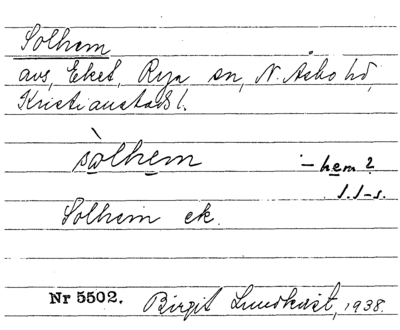 Solhem
avs, Eket, Rya sn, N. Åsbo hd,
Kristianstads l.
sòlhem
– hem?
J.J-s.
Solhem ek.
Nr 5502. Birgit Lundkvist, 1938.